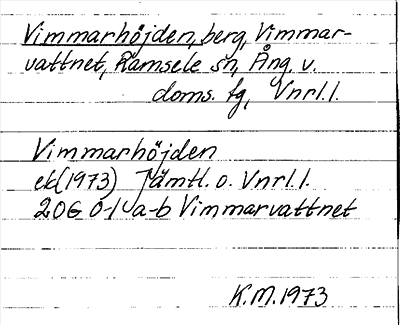 Vimmarhöjden, berg, Vimmar-
vattnet, Ramsele sn, Ång. v.
doms. fg, Vnrl. l.
Vimmarhöjden
ek(1973) Jämtl. o. Vnrl. l.
20G 0-1 a-b Vimmarvattnet
K.M. 1973